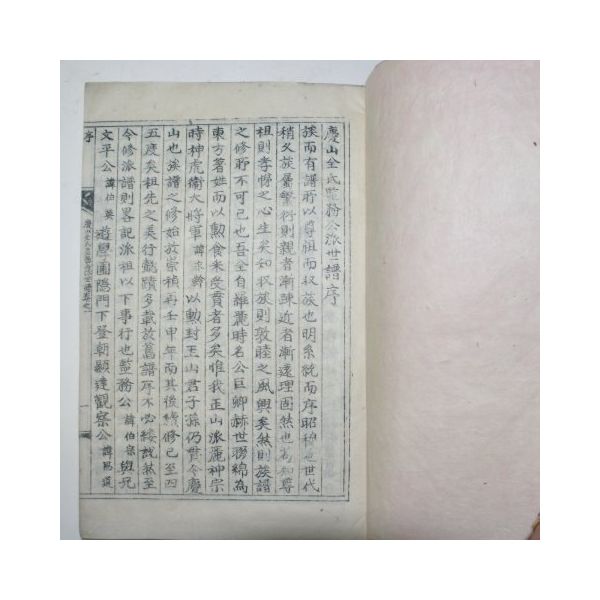 慶山全氏監務公派世譜序
族而有譜所以尊祖而收族也明系統而序昭穆也世代
稍久族屬繁衍則親者漸疎近者漸遠理固然也苟知尊
祖則孝悌之心生矣知收族則敦睦之風興矣然則族譜
之修所不可已也吾全自羅麗時名公巨卿赫世簪綿為
東方著姓而以勳食采受貫者多矣惟我玉山派麗神宗
時神虎衛大將軍諱永幹以勳封玉山君子孫仍貫今慶
山也族譜之修始於崇禎再壬申年而其後續修已至四
五度矣祖先之美行懿蹟多載於舊譜序不必縷說然至
今修派譜則畧記派祖以下事行也監務公諱伯宗與兄
文平公諱伯英遊學圃隱門下登朝顯達觀察公諱
序